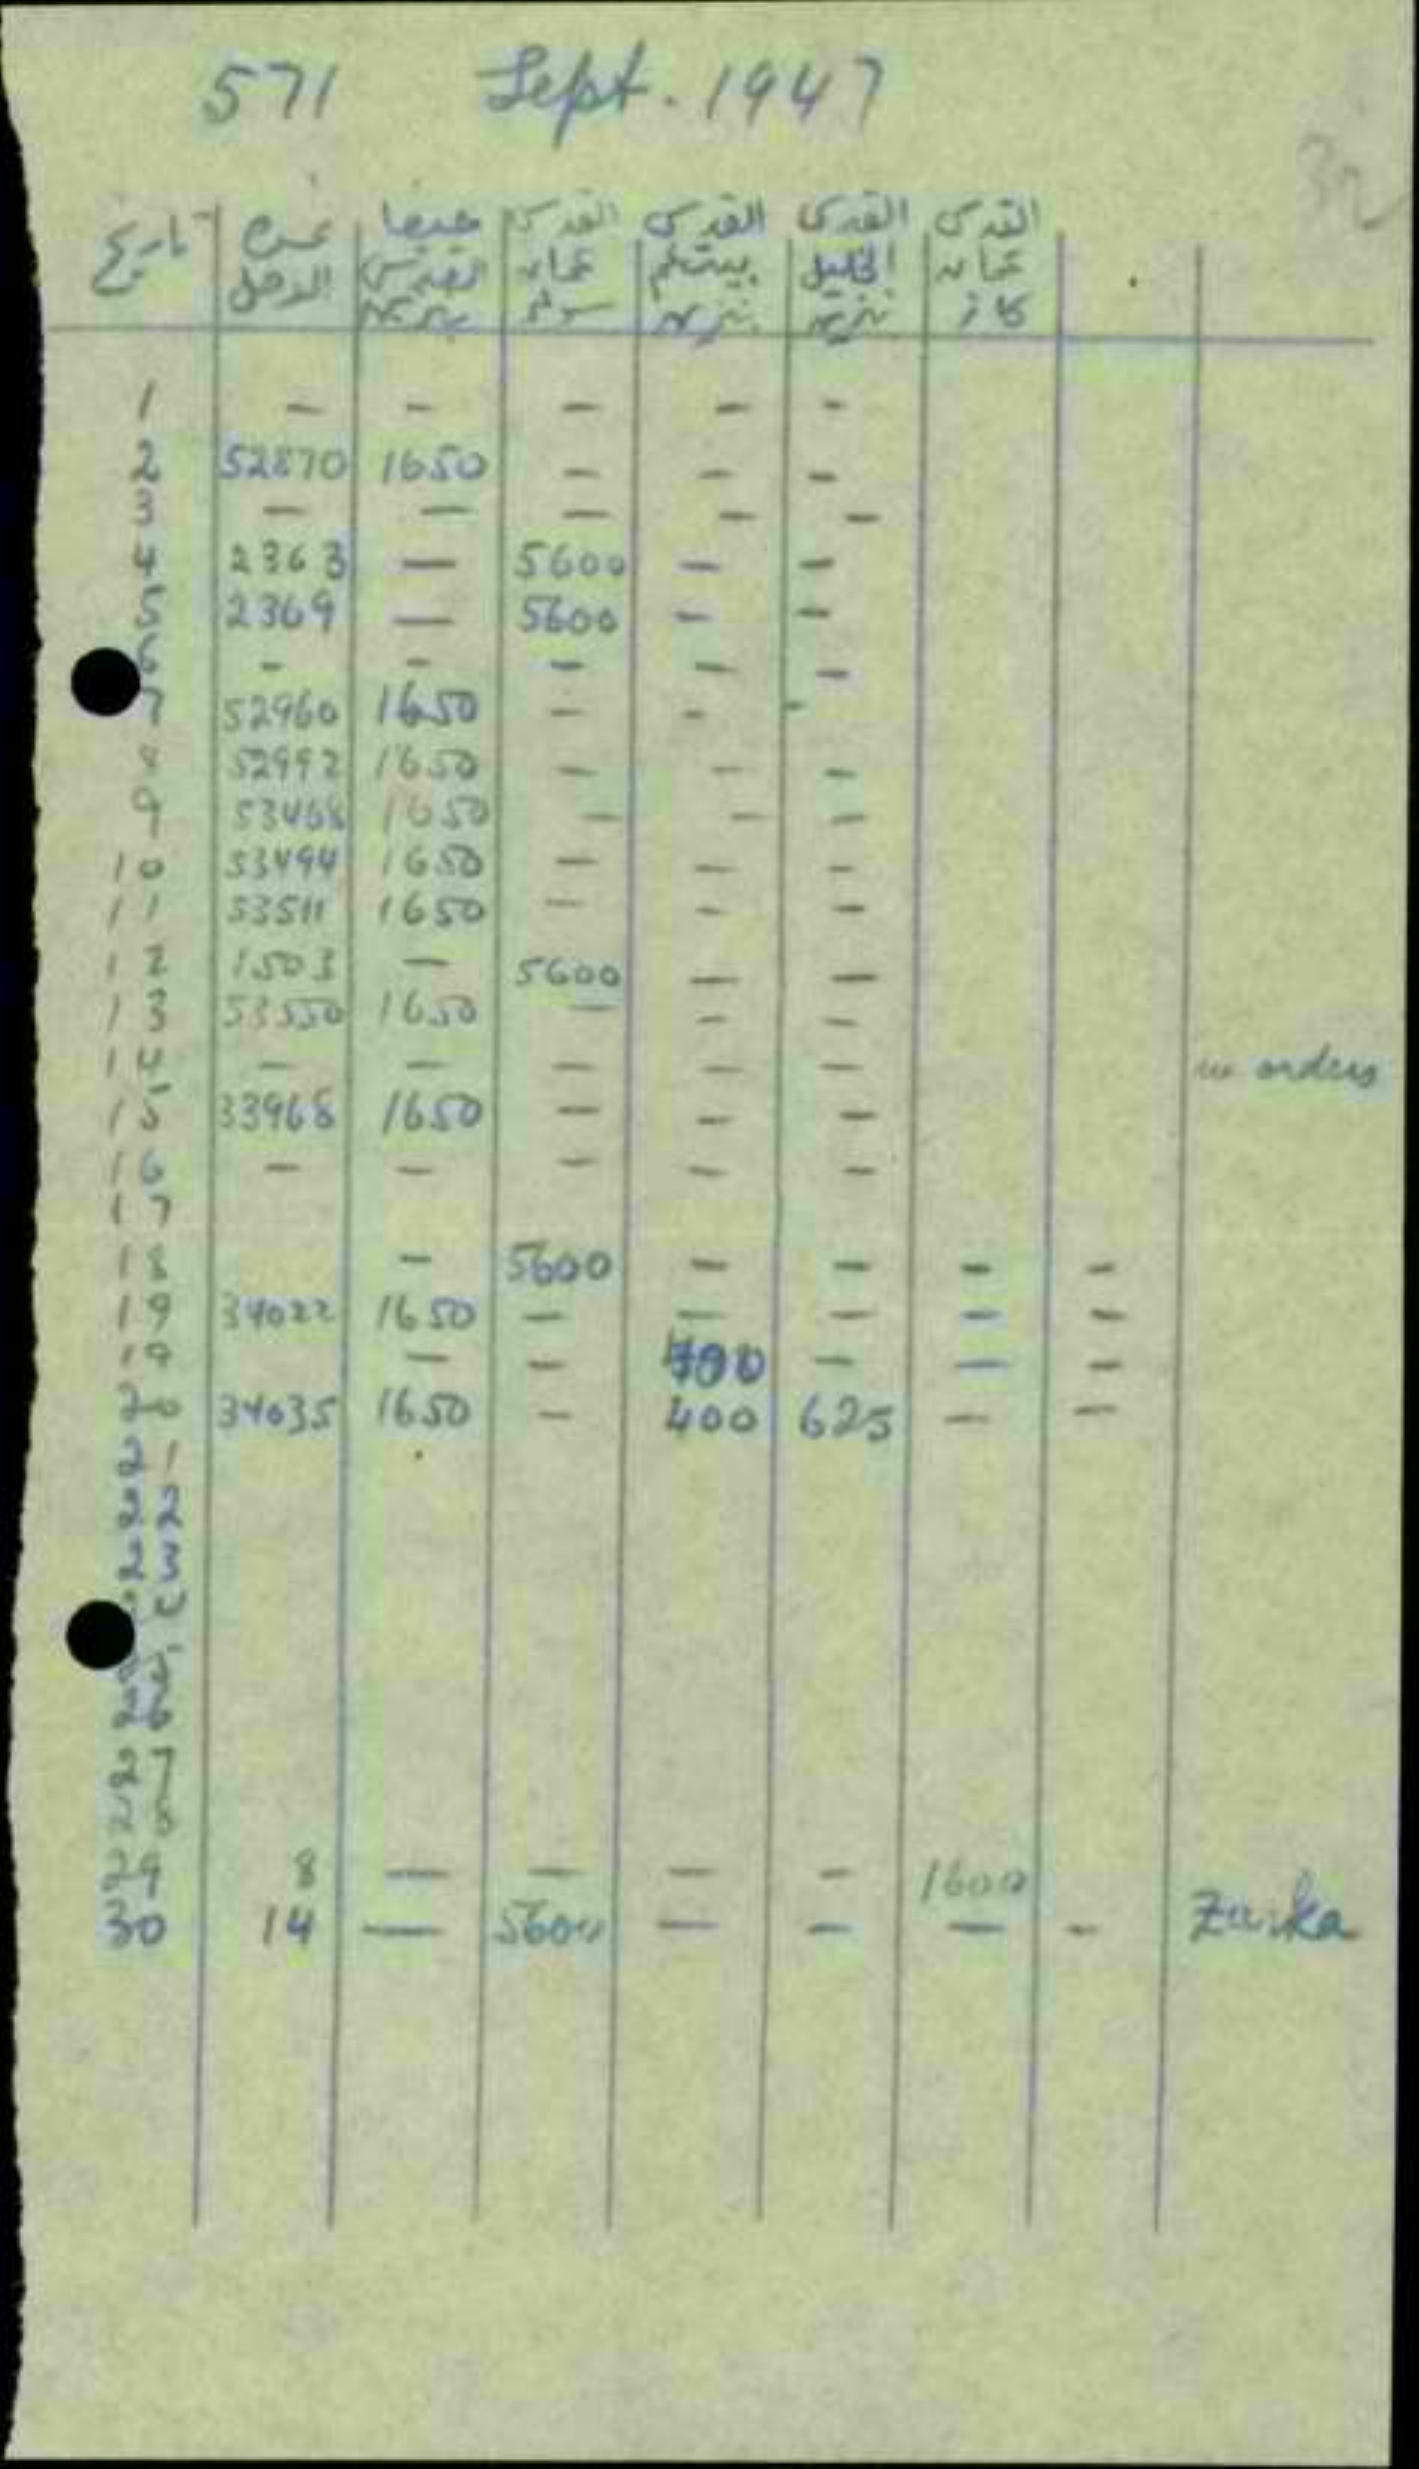 571 Sept. 1947
تاريخ | الوصل | حيفا القدس بنزين | القدس عمان سولر | القدس بيتلحم بنزين | القدس الخليل بنزين | القدس عمان كاز
1 — — — — —
2 52870 1650 — — —
3 — — — — —
4 2363 — 5600 — —
5 2369 — 5600 — —
6 - - — — —
7 52960 1650 — - -
8 52992 1650 — — —
9 53468 1650 — — —
10 53494 1650 — — -
11 53511 1650 — - —
12 1503 — 5600 — —
13 53550 1650 — — —
14 — — — — — orders
15 33968 1650 — — —
16 — — — — —
17
18 - 5600 — — — —
19 34022 1650 — — — — —
19 — — 700 — — —
20 34035 1650 — 400 625 — —
21
22
23
24
25
26
27
28
29 8 — — — — 1600
30 14 — 5600 — — — - Zarka